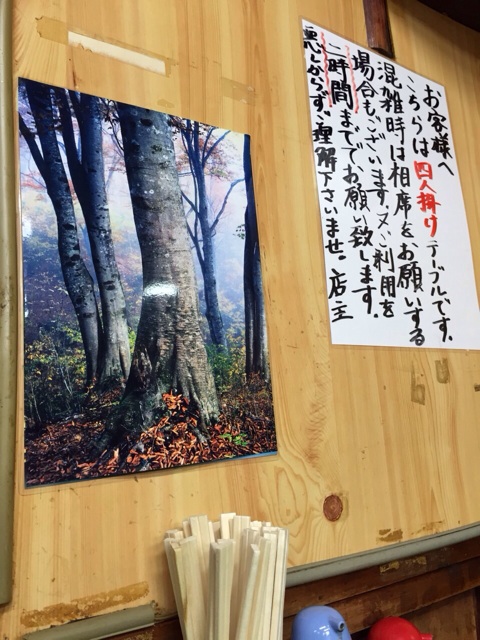 お客様へ
こちらは四人掛けテーブルです。
混雑時は相席をお願いする
場合もございます。又ご利用を
二時間まででお願い致します。
悪しからずご理解下さいませ。店主